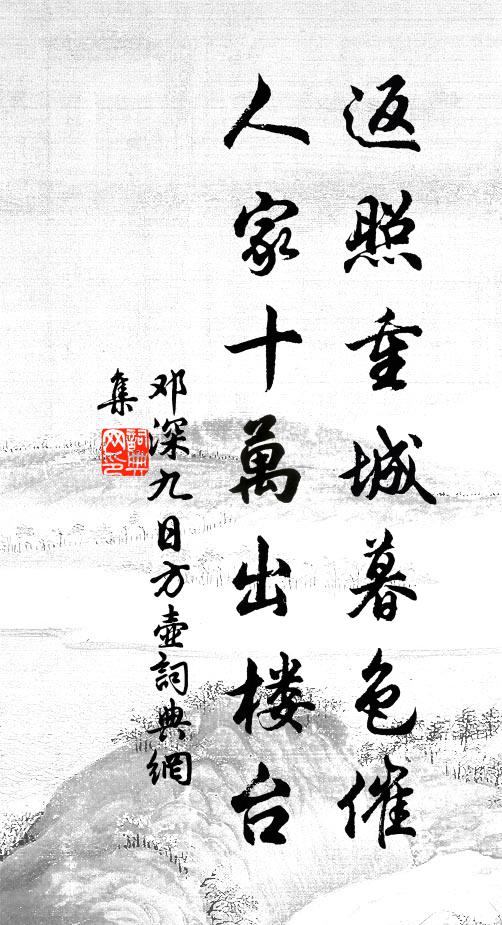 返照重城暮色催
人家十萬出楼台
邓深九日方壺詞典網
集
詞典
网印